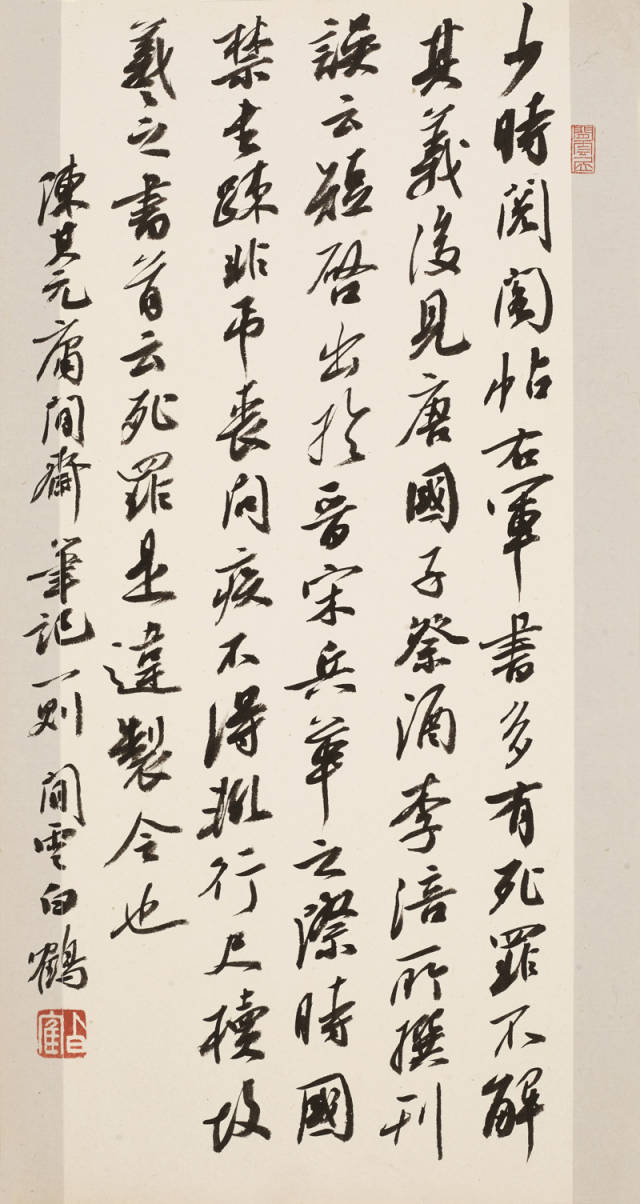 少時閱閣帖右軍書多有死罪不解
其義後見唐國子祭酒李涪所撰刊
誤云短啓出於晉宋兵革之際時國
禁書疎非弔喪問疾不得輒行尺牘故
羲之書首云死罪是違製令也
陳其元庸閒齋筆記一則 閒雲白鶴